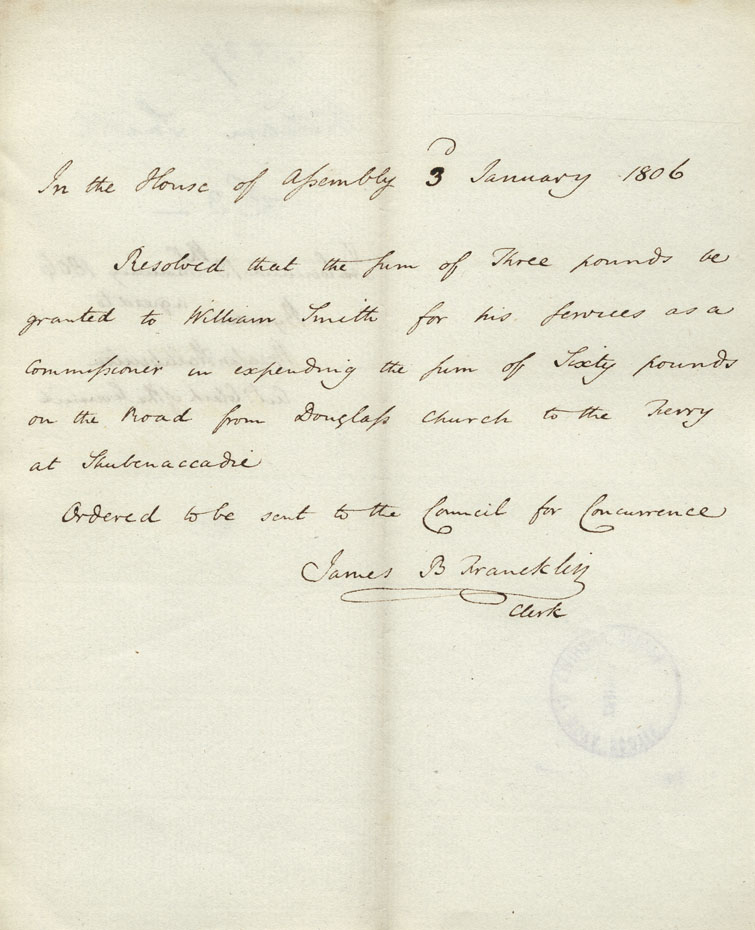 In the House of Assembly 3d January 1806
Resolved that the sum of Three pounds be
granted to William Smith for his services as a
Commissioner in expending the sum of Sixty pounds
on the Road from Douglass Church to the Ferry
at Shubenaccadie
Ordered to be sent to the Council for Concurrence
James B Francklin
Clerk